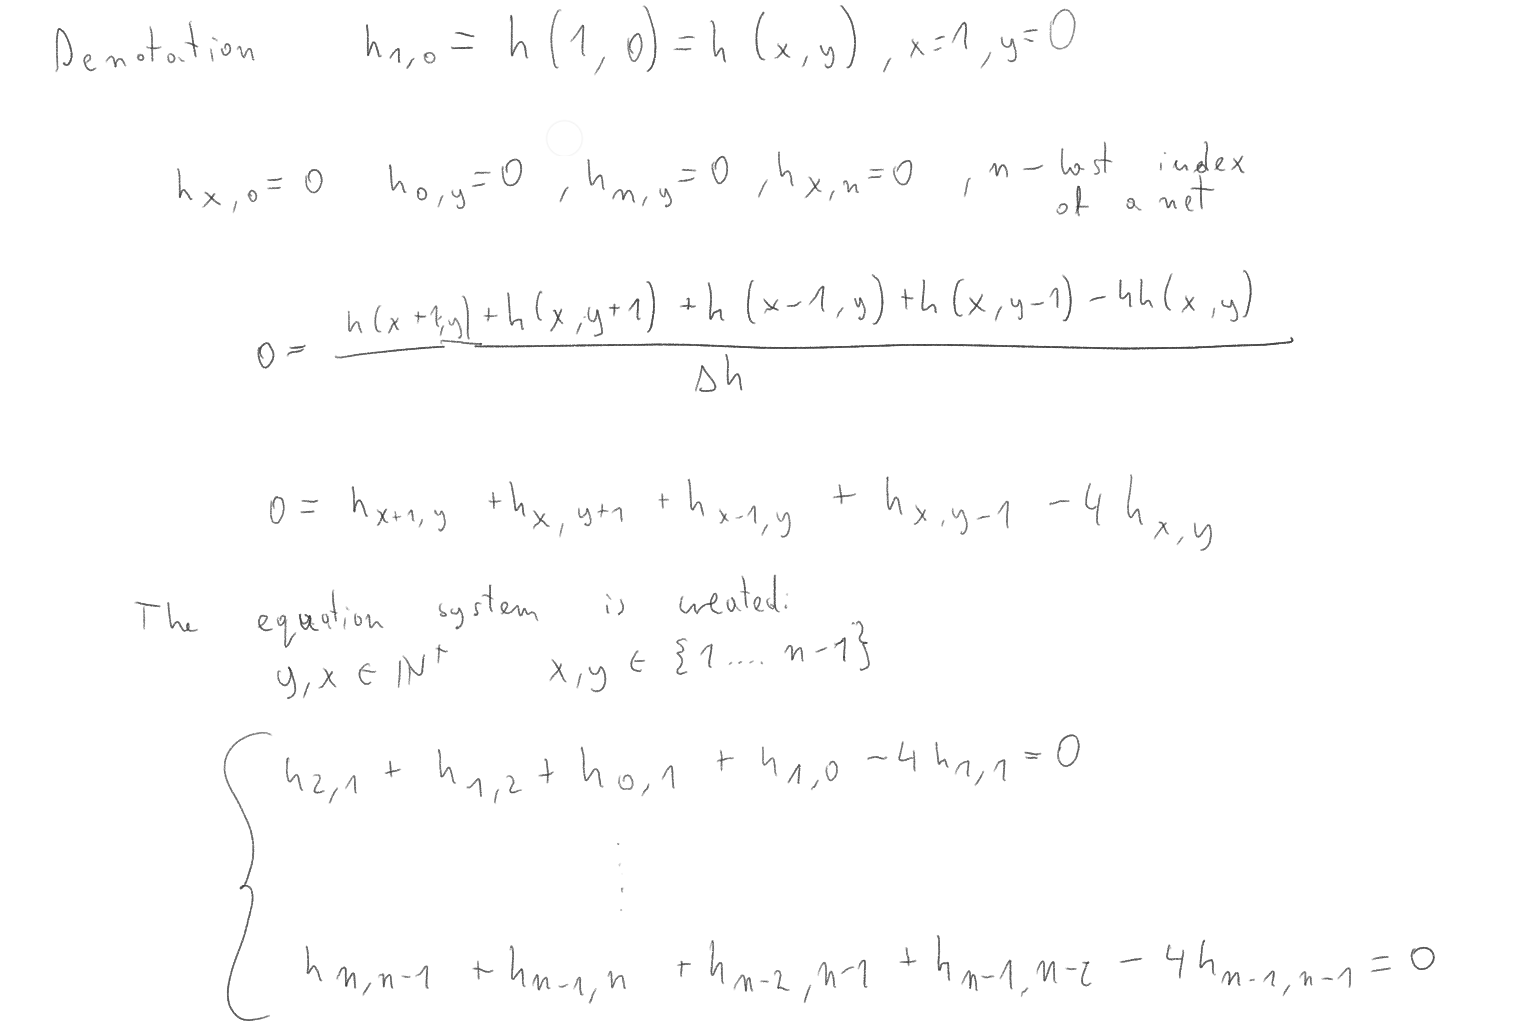 Denotation h₁,₀ = h(1, 0) = h(x, y), x=1, y=0
hₓ,₀ = 0 h₀,y = 0 , hₙ,y = 0 , hₓ,ₙ = 0 , n – last index
of a net
0 = (h(x+1,y) + h(x,y+1) + h(x-1,y) + h(x,y-1) - 4h(x,y)) / Δh
0 = h_{x+1,y} + h_{x,y+1} + h_{x-1,y} + h_{x,y-1} - 4h_{x,y}
The equation system is created:
y,x ∈ ℕ⁺ x,y ∈ {1....n-1}
h_{2,1} + h_{1,2} + h_{0,1} + h_{1,0} - 4h_{1,1} = 0
⋮
h_{n,n-1} + h_{n-1,n} + h_{n-2,n-1} + h_{n-1,n-2} - 4h_{n-1,n-1} = 0